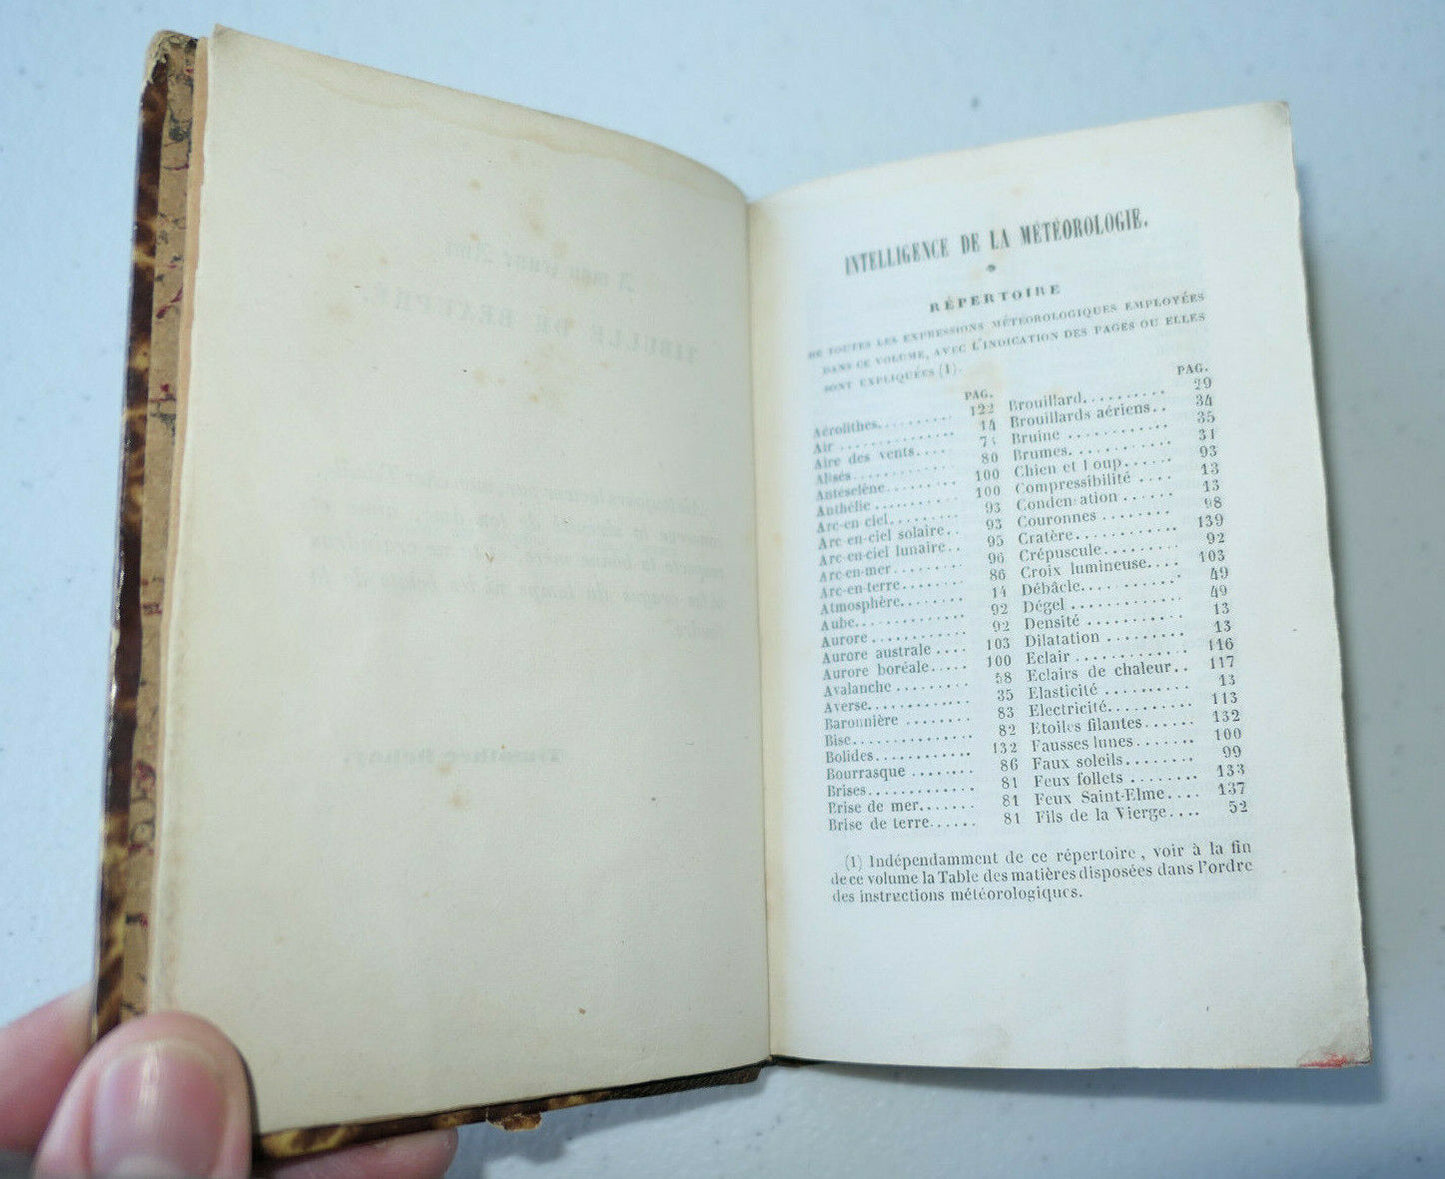 INTELLIGENCE DE LA MÉTÉOROLOGIE.
RÉPERTOIRE
DE TOUTES LES EXPRESSIONS MÉTÉOROLOGIQUES EMPLOYÉES
DANS CE VOLUME, AVEC L'INDICATION DES PAGES OU ELLES
SONT EXPLIQUÉES (1).
PAG.
Aérolithes......... 122
Air ............. 14
Aire des vents....
Alisés.......... 80
Antesélène........ 100
Anthélie ......... 100
Arc-en ciel........ 93
Arc-en-ciel solaire.. 93
Arc-en-ciel lunaire.. 95
Arc-en-mer........ 96
Arc-en-terre....... 86
Atmosphère........ 14
Aube............ 92
Aurore ........... 92
Aurore australe .... 103
Aurore boréale..... 100
Avalanche ......... 58
Averse............ 35
Baronnière ........ 83
Bise.............. 82
Bolides........... 132
Bourrasque ........ 86
Brises............ 81
Brise de mer....... 81
Brise de terre...... 81
PAG.
Brouillard......... 29
Brouillards aériens.. 34
Bruine ........... 35
Brumes........... 31
Chien et Loup...... 93
Compressibilité .... 13
Condensation ...... 13
Couronnes ........ 98
Cratère........... 139
Crépuscule........ 92
Croix lumineuse.... 103
Débâcle........... 49
Dégel ............ 49
Densité .......... 13
Dilatation ........ 13
Eclair ............ 116
Eclairs de chaleur.. 117
Elasticité .......... 13
Electricité......... 113
Etoiles filantes...... 132
Fausses lunes....... 100
Faux soleils........ 99
Feux follets ........ 133
Feux Saint-Elme.... 137
Fils de la Vierge.... 52
(1) Indépendamment de ce répertoire, voir à la fin
de ce volume la Table des matières disposées dans l'ordre
des instructions météorologiques.